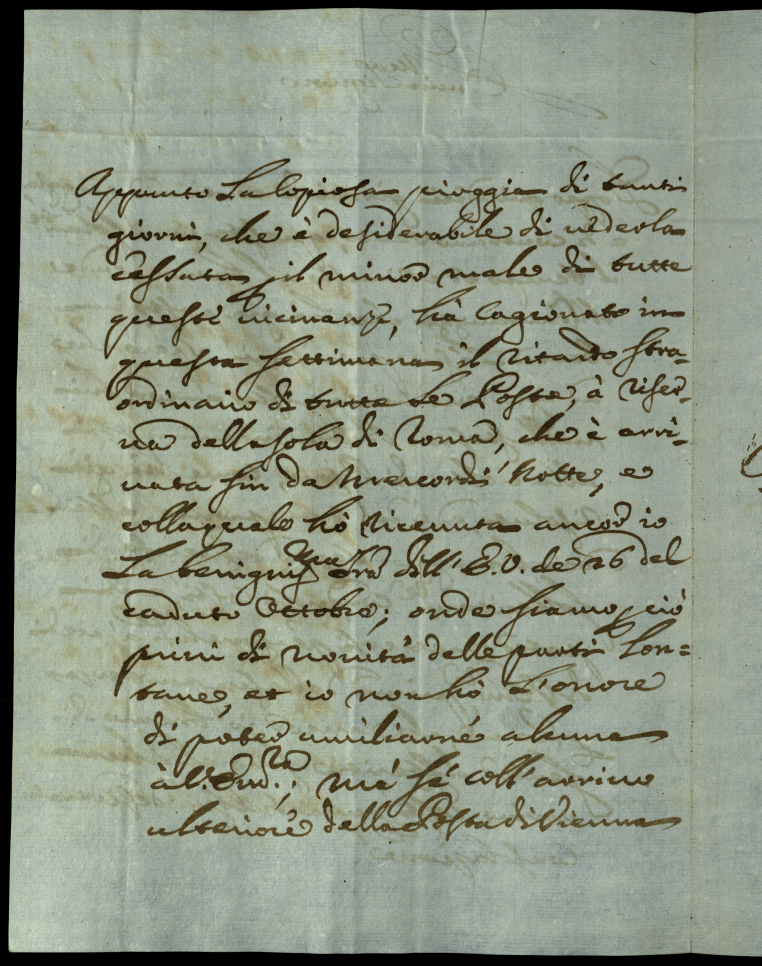 Appunto la copiosa pioggia di tanti
giorni, che è desiderabile di vederla
cessata p il minor male di tutte
queste vicinanze, hà cagionato in
questa settimana il ritardo stra-
ordinario di tutte le Poste, à riser-
va della sola di Roma, che è arri-
vata sin da Mercordi Notte, e
colla quale hò ricevuta ancor io
La benigniss.ma lra dell' E.V. de 26 del
caduto Ottobre; onde siamo p ciò
privi di novità delle parti lon=
tane, et io non hò l'onore
di poter umiliarne alcuna
à l'Em.za; mà sé coll' arrivo
ulteriore della Posta di Vienna